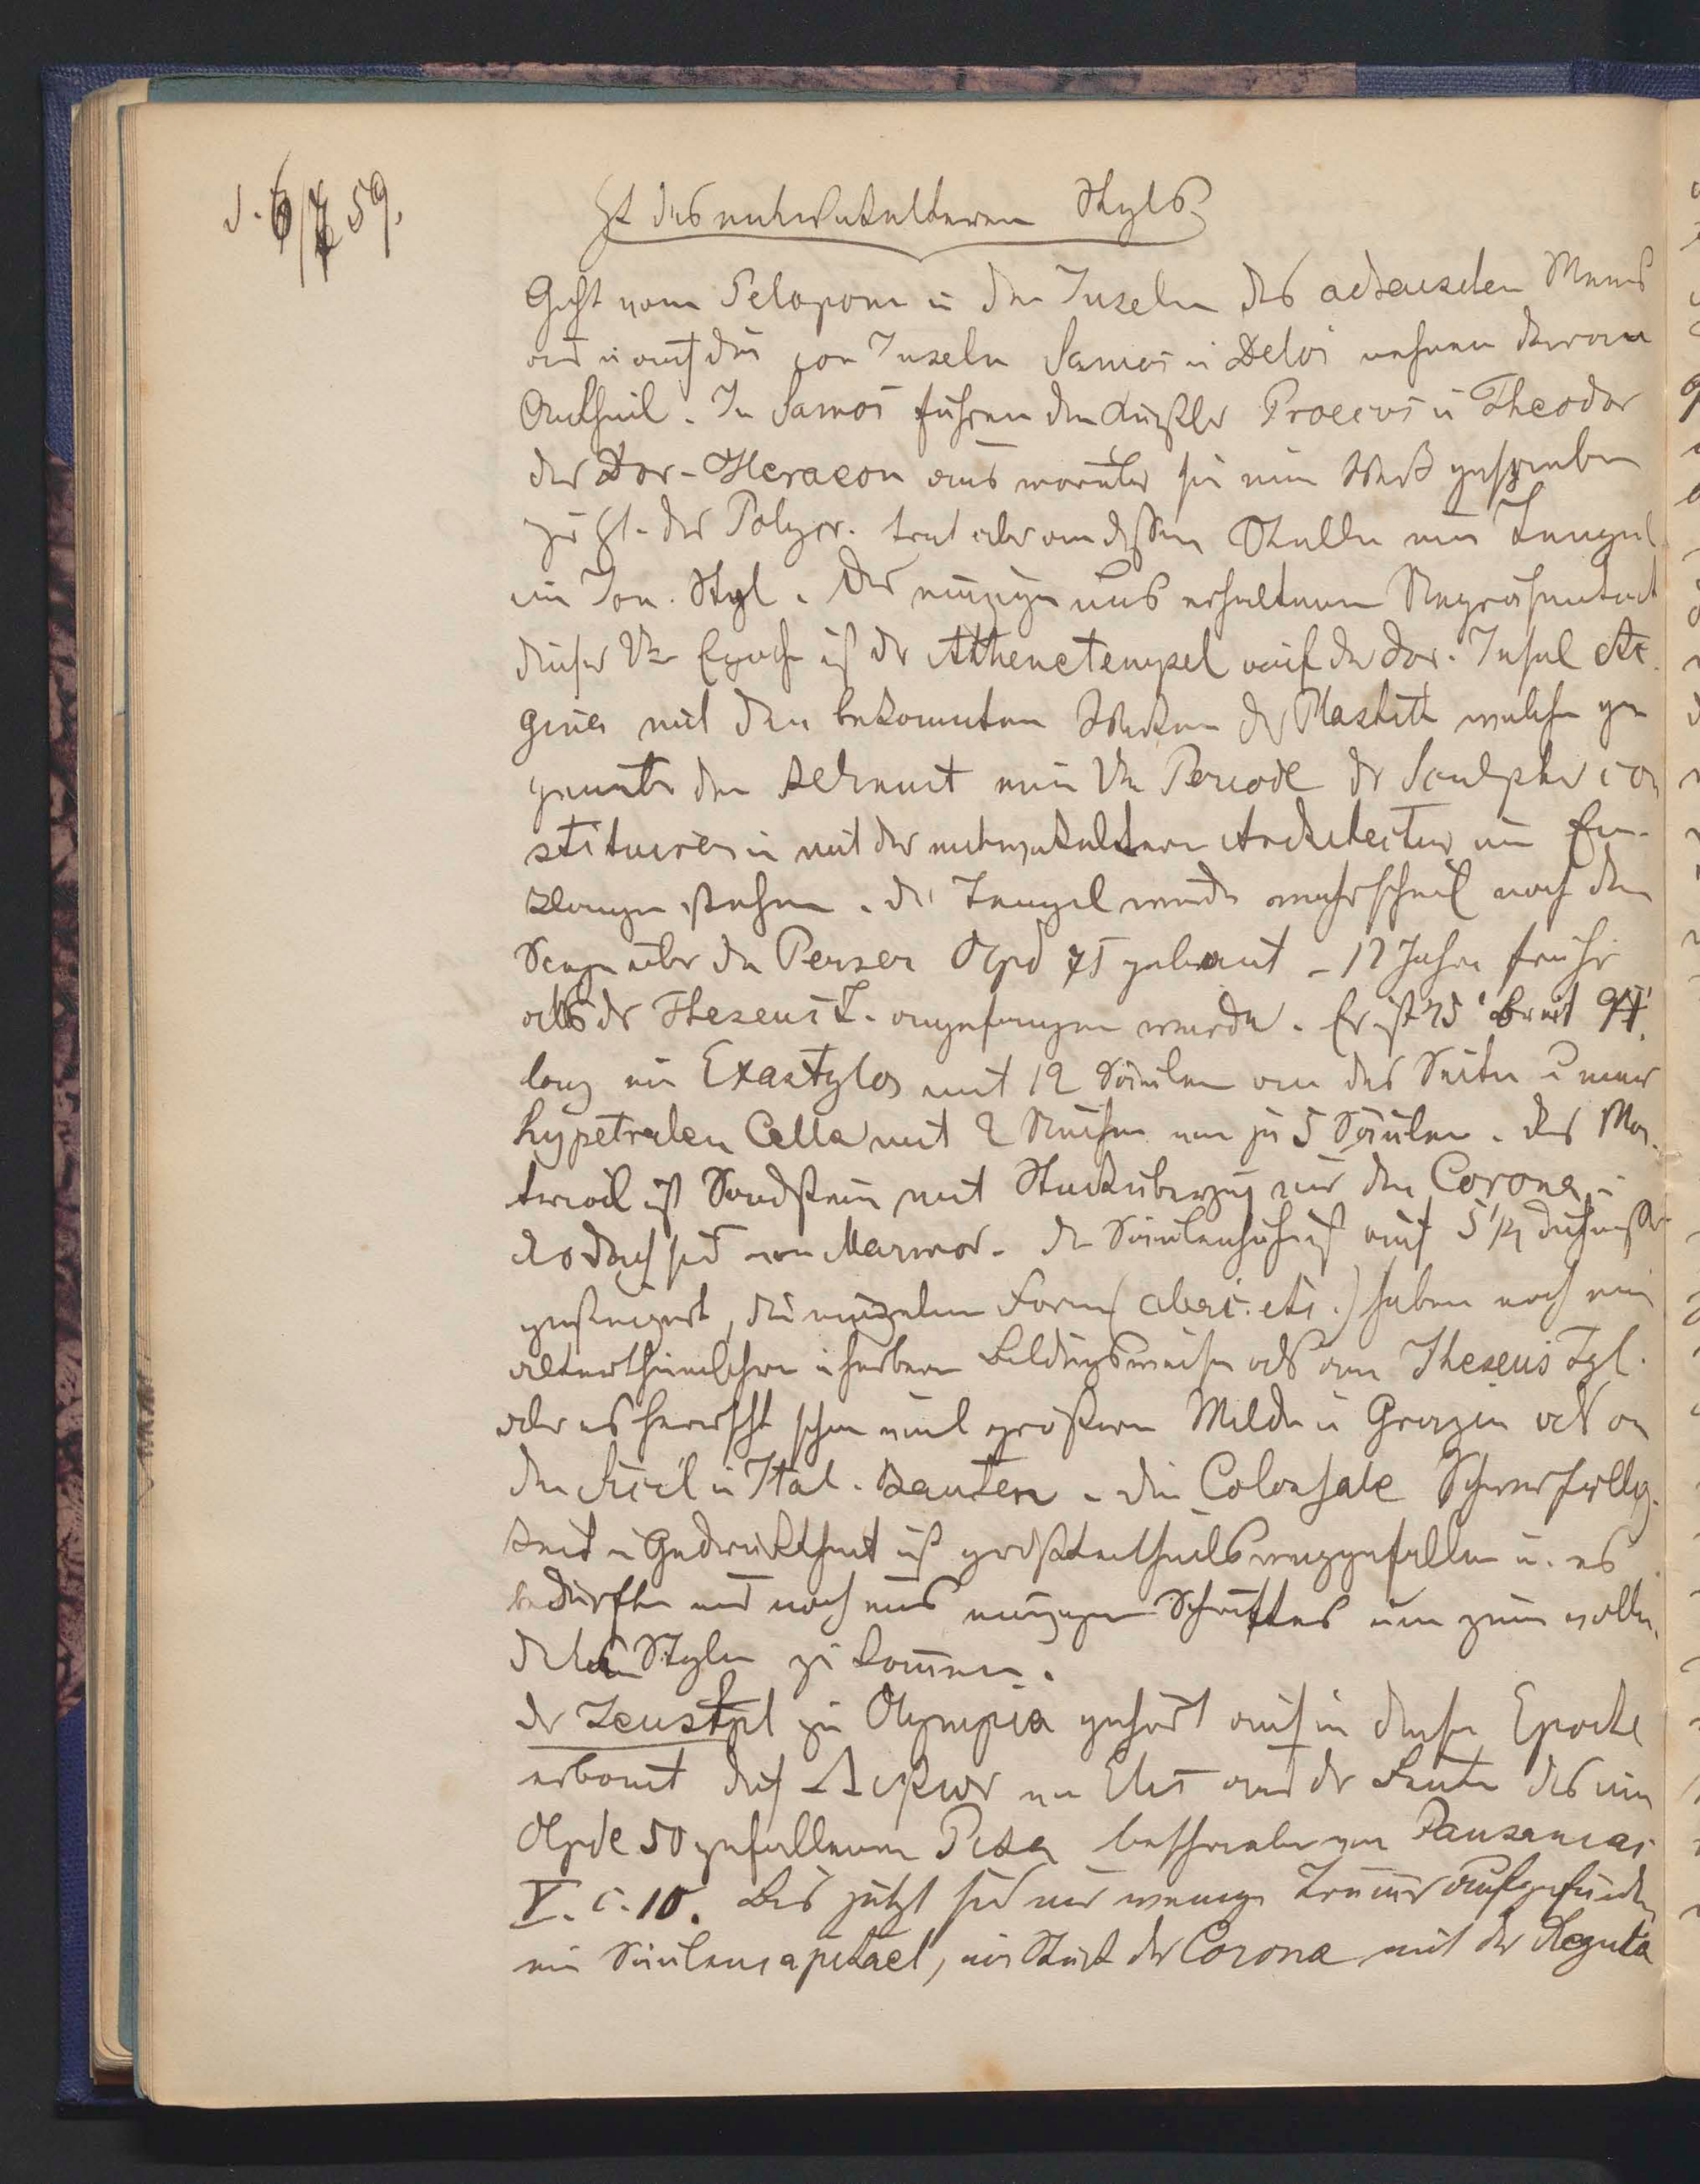 d. 6/7 59.
Zt des entwickelteren Styls
Geht vom Pelopon u den Inseln des achäischen Meeres
aus u auch die ion Inseln Samos u Delos nehmen daran
Antheil. In Samos führen die Künstler Rhoecus u Theodor
das Dor-Heraeon aus worüber sie eine geschrieben
zu Zt. des Polycr. trat aber an dessen Stelle ein Tempel
im Ion. Styl. Der einzige uns erhaltene Repräsentant
dieser Epoche ist der Athenetempel auf der dor. Insel Ae-
gina mit den bekannten Werken der Plastik welche
eine Periode der Sculptur con
stituiren u mit der entwickelteren Architectur im Ein-
klange stehen. der Tempel wurde wahrscheinl nach dem
Siege über die Perser Olpd 75 gebaut – 12 Jahre früher
als der Theseus T. angefangen wurde. Er ist 45' breit 94'
lang ein Exastylos mit 12 Säulen an der Seite u einer
hypetralen Cella mit 2 Reihen von je 5 Säulen. das Ma-
terial ist Sandstein mit Stucküberzug nur die Corona u
das Dach sind von Marmor. die Säulenhöhe ist auf 5 1/4 Durchmesser
gesteigert, die einzelnen Formen haben noch eine
alterthümlichere u herbere Bildungsweise als am Theseus Tpl.
aber es herrscht schon viel größere Milde u Grazie als an
den Sicil u Ital. Bauten. die Colossale Schwerfällig-
keit u Gedrücktheit ist größtentheils weggefallen u. es
bedurfte nur noch eines einzigen Schrittes um zum vollen-
deten Style zu kommen.
der Zeustpl zu Olympia gehört auch in diese Epoche
erbaut durch Libon von Elis aus der Beute des im
Olpde 50 gefallenen Pisa beschrieben von Pausanias
V. c. 10. Bis jetzt sind nur wenige Trümmer aufgefunden
ein Säulencapitael, ein Stück der Corona mit der Regula